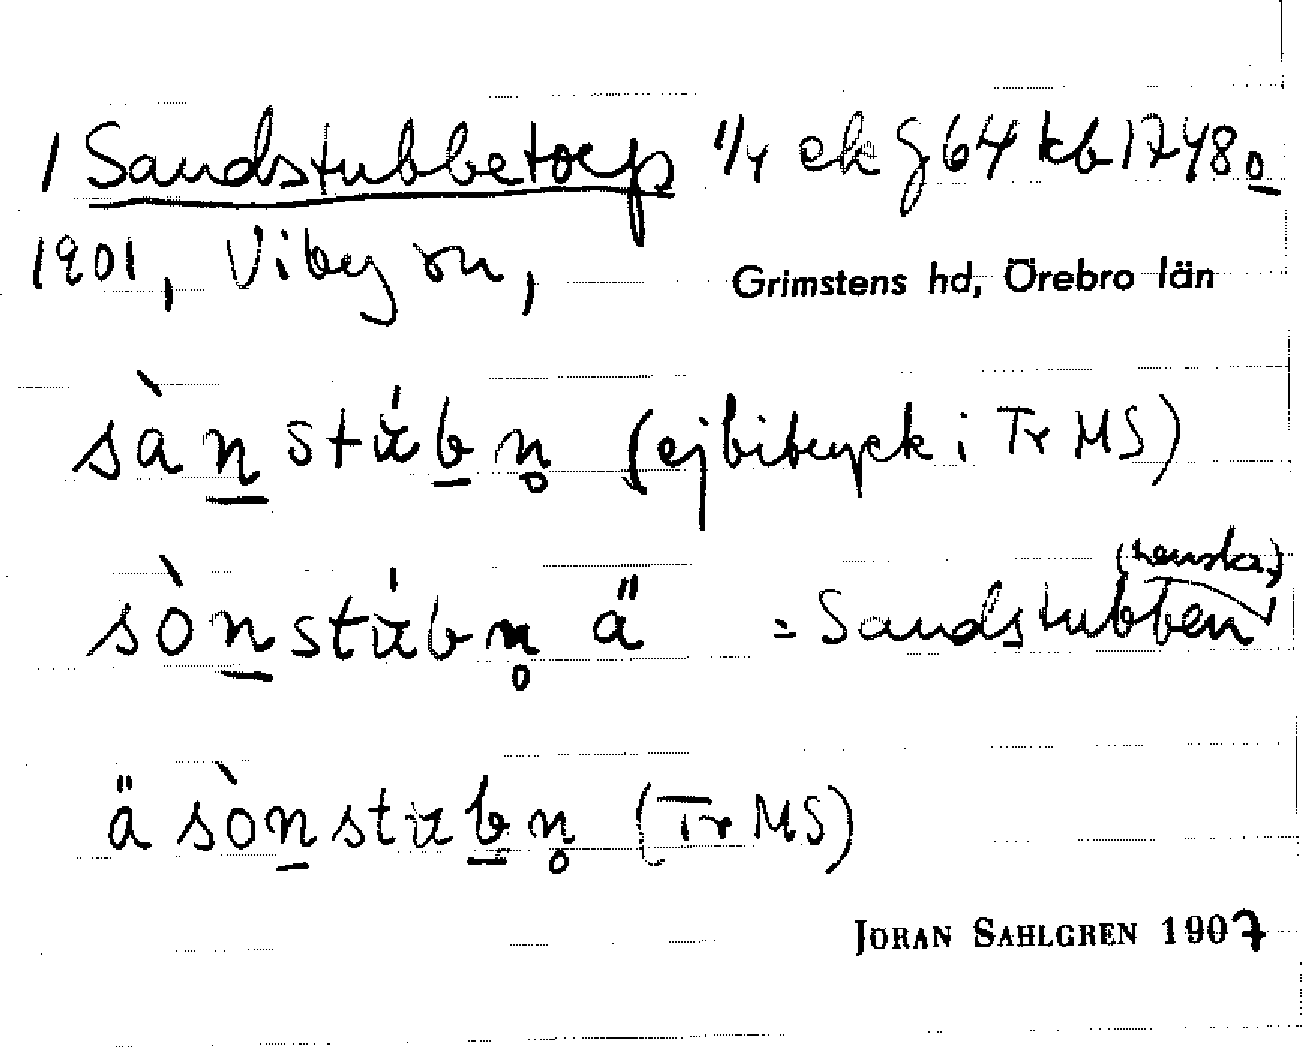 1 Sandstubbetorp 1/4 ek J 64 kb 1748 o
1901, Viby sn,
Grimstens hd, Örebro län
sànstúbn̥ (ej bitryck i Tr MS)
sònstúbn̥ ä = Sandstubben
ä sònstubn̥ (Tr MS)
JORAN SAHLGREN 1907